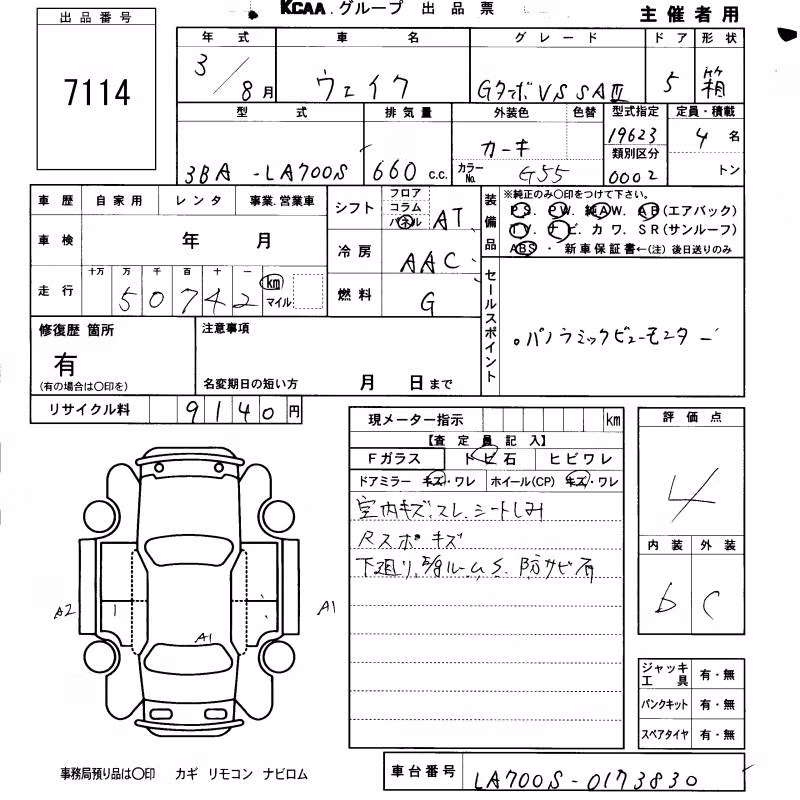 KCAA.グループ 出品票
主催者用
出品番号
7114
年式 車名 グレード ドア 形状
3/8月 ウェイク GターボVS SAⅢ 5 箱
型式 排気量 外装色 色替 型式指定 定員・積載
3BA -LA700S 660 c.c. カーキ 19623 4名
カラーNo. G55 類別区分 0002 トン
車歴 自家用 レンタ 事業.営業車
車検 年 月
走行 十万 万 千 百 十 一
50742 km マイル
シフト フロア コラム パネル AT
冷房 AAC
燃料 G
装備品
※純正のみ○印をつけて下さい。
PS. PW. 純AW. AB(エアバック)
TV. ナビ. カワ. SR(サンルーフ)
ABS ・ 新車保証書←(注) 後日送りのみ
セールスポイント
。パノラミックビューモニター
修復歴 箇所
有
(有の場合は○印を)
注意事項
名変期日の短い方 月 日まで
リサイクル料 9140円
現メーター指示 km
【査定員記入】
Fガラス トビ石 ヒビワレ
ドアミラー キズ・ワレ ホイール(CP) キズ・ワレ
室内キズ.スレ.シートしみ
Rスポキズ
下廻り.5/8ルームS.防サビ有
評価点
4
内装 外装
b C
A2
1
A1
A1
ジャッキ工具 有・無
パンクキット 有・無
スペアタイヤ 有・無
事務局預り品は○印 カギ リモコン ナビロム
車台番号 LA700S-0173830